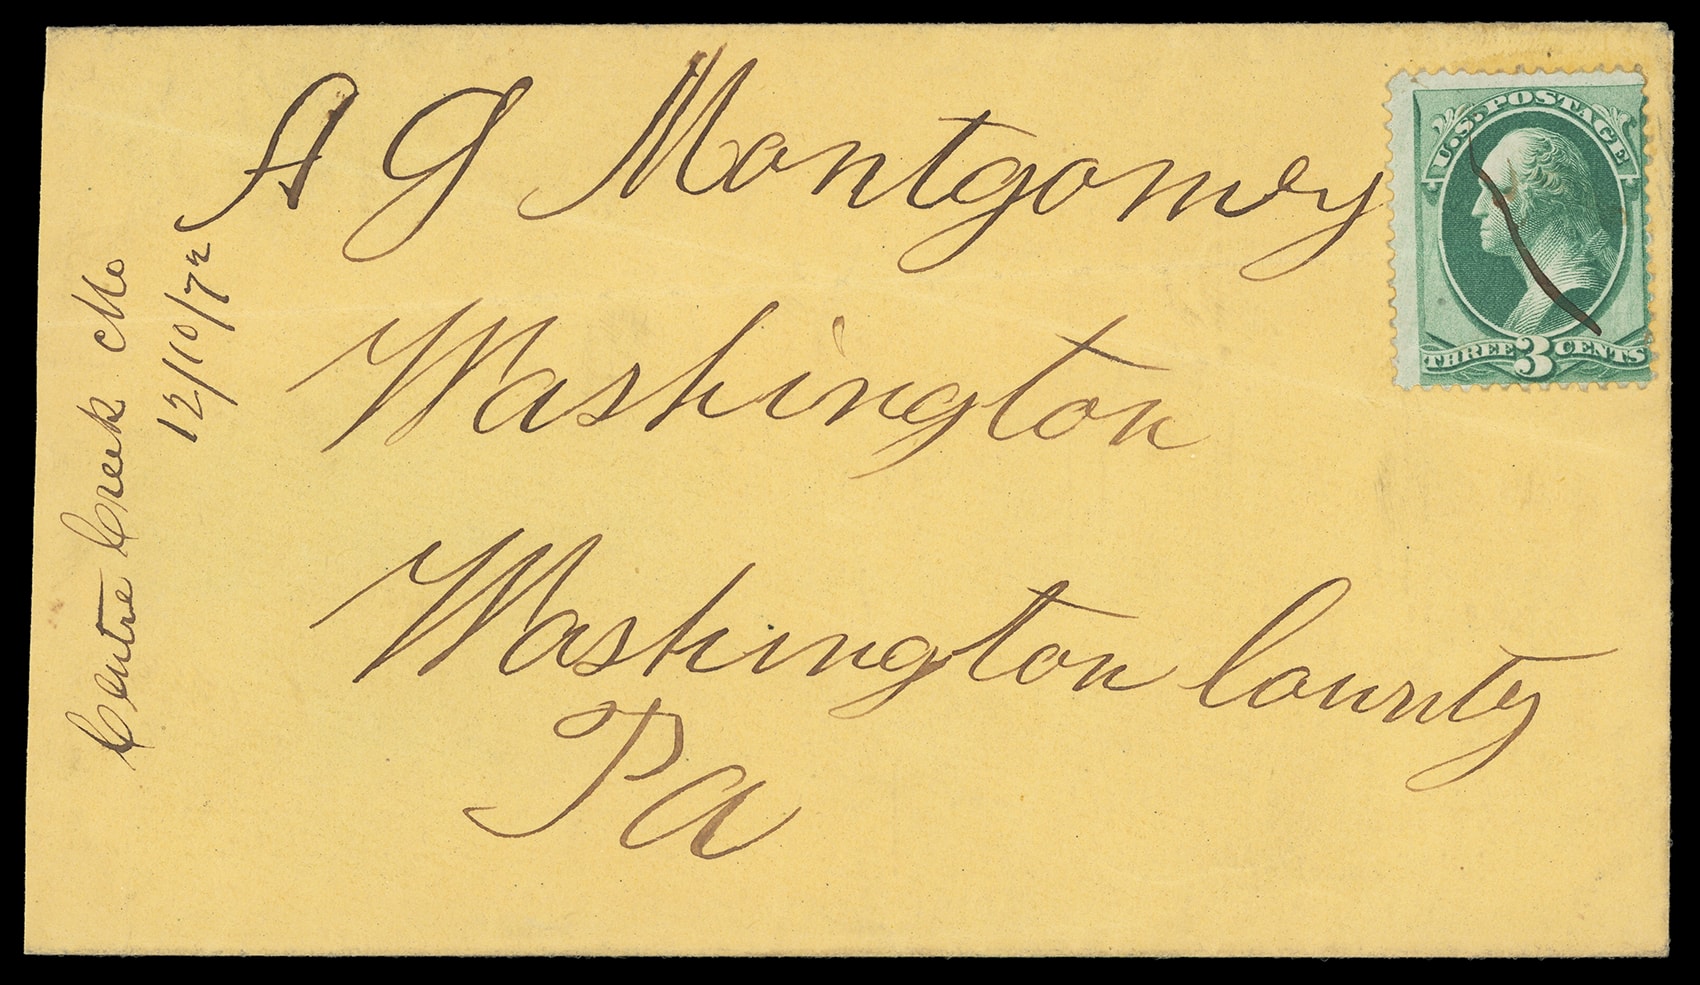 A G Montgomery
Washington
Washington County
Pa
Centre Creek Mo
12/10/72
U.S. POSTAGE
THREE 3 CENTS